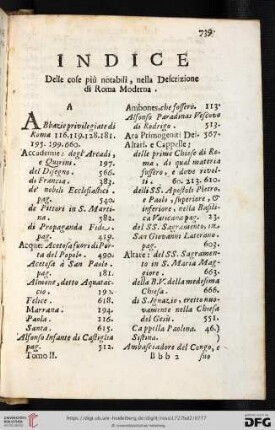 739
INDICE
Delle cose più notabili, nella Descrizione
di Roma Moderna.
A
ABbazie privilegiate di
Roma 116.119.128.181.
195. 199. 660.
Accademie: degl' Arcadi,
e Quirini. 197.
del Disegno. 566.
di Francia. 383.
de' nobili Ecclesiastici.
pag. 540.
de Pittori in S. Marti-
na. 582.
di Propaganda Fide,
pag. 419.
Acque: Acetosa fuori di Por-
ta del Popolo. 490.
Acetosa à San Paolo.
pag. 181.
Almone, detto Aquatac-
cia. 192.
Felice. 618.
Marrana. 194.
Paola. 116.
Santa. 615.
Alfonso Infante di Castiglia
pag. 512.
Tomo II.
Ambones. che fussero. 113.
Alfonso Paradinas Vescovo
di Rodrigo. 513.
Ara Primogeniti Dei. 567.
Altari, e Cappelle;
delle prime Chiese di Ro-
ma, di qual materia
fussero, e dove rivol-
ti. 60. 213. 610.
delli SS. Apostoli Pietro,
e Paolo, superiore, &
inferiore, nella Basili-
ca Vaticana pag. 23.
del SS. Sagramento, in
San Giovanni Laterano.
pag. 603.
Altare: del SS. Sagramento
in S. Maria Mag-
giore. 663.
della B.V. della medesima
Chiesa. 666.
di S. Ignazio, eretto nuo-
vamente nella Chiesa
del Gesù. 551.
Cappella Paolina. 46.)
Sistina. )
Ambasciadore del Congo, e
Bbb 2 suo
https://digi.ub.uni-heidelberg.de/diglit/rossi1727bd2/0777
© Universitätsbibliothek Heidelberg